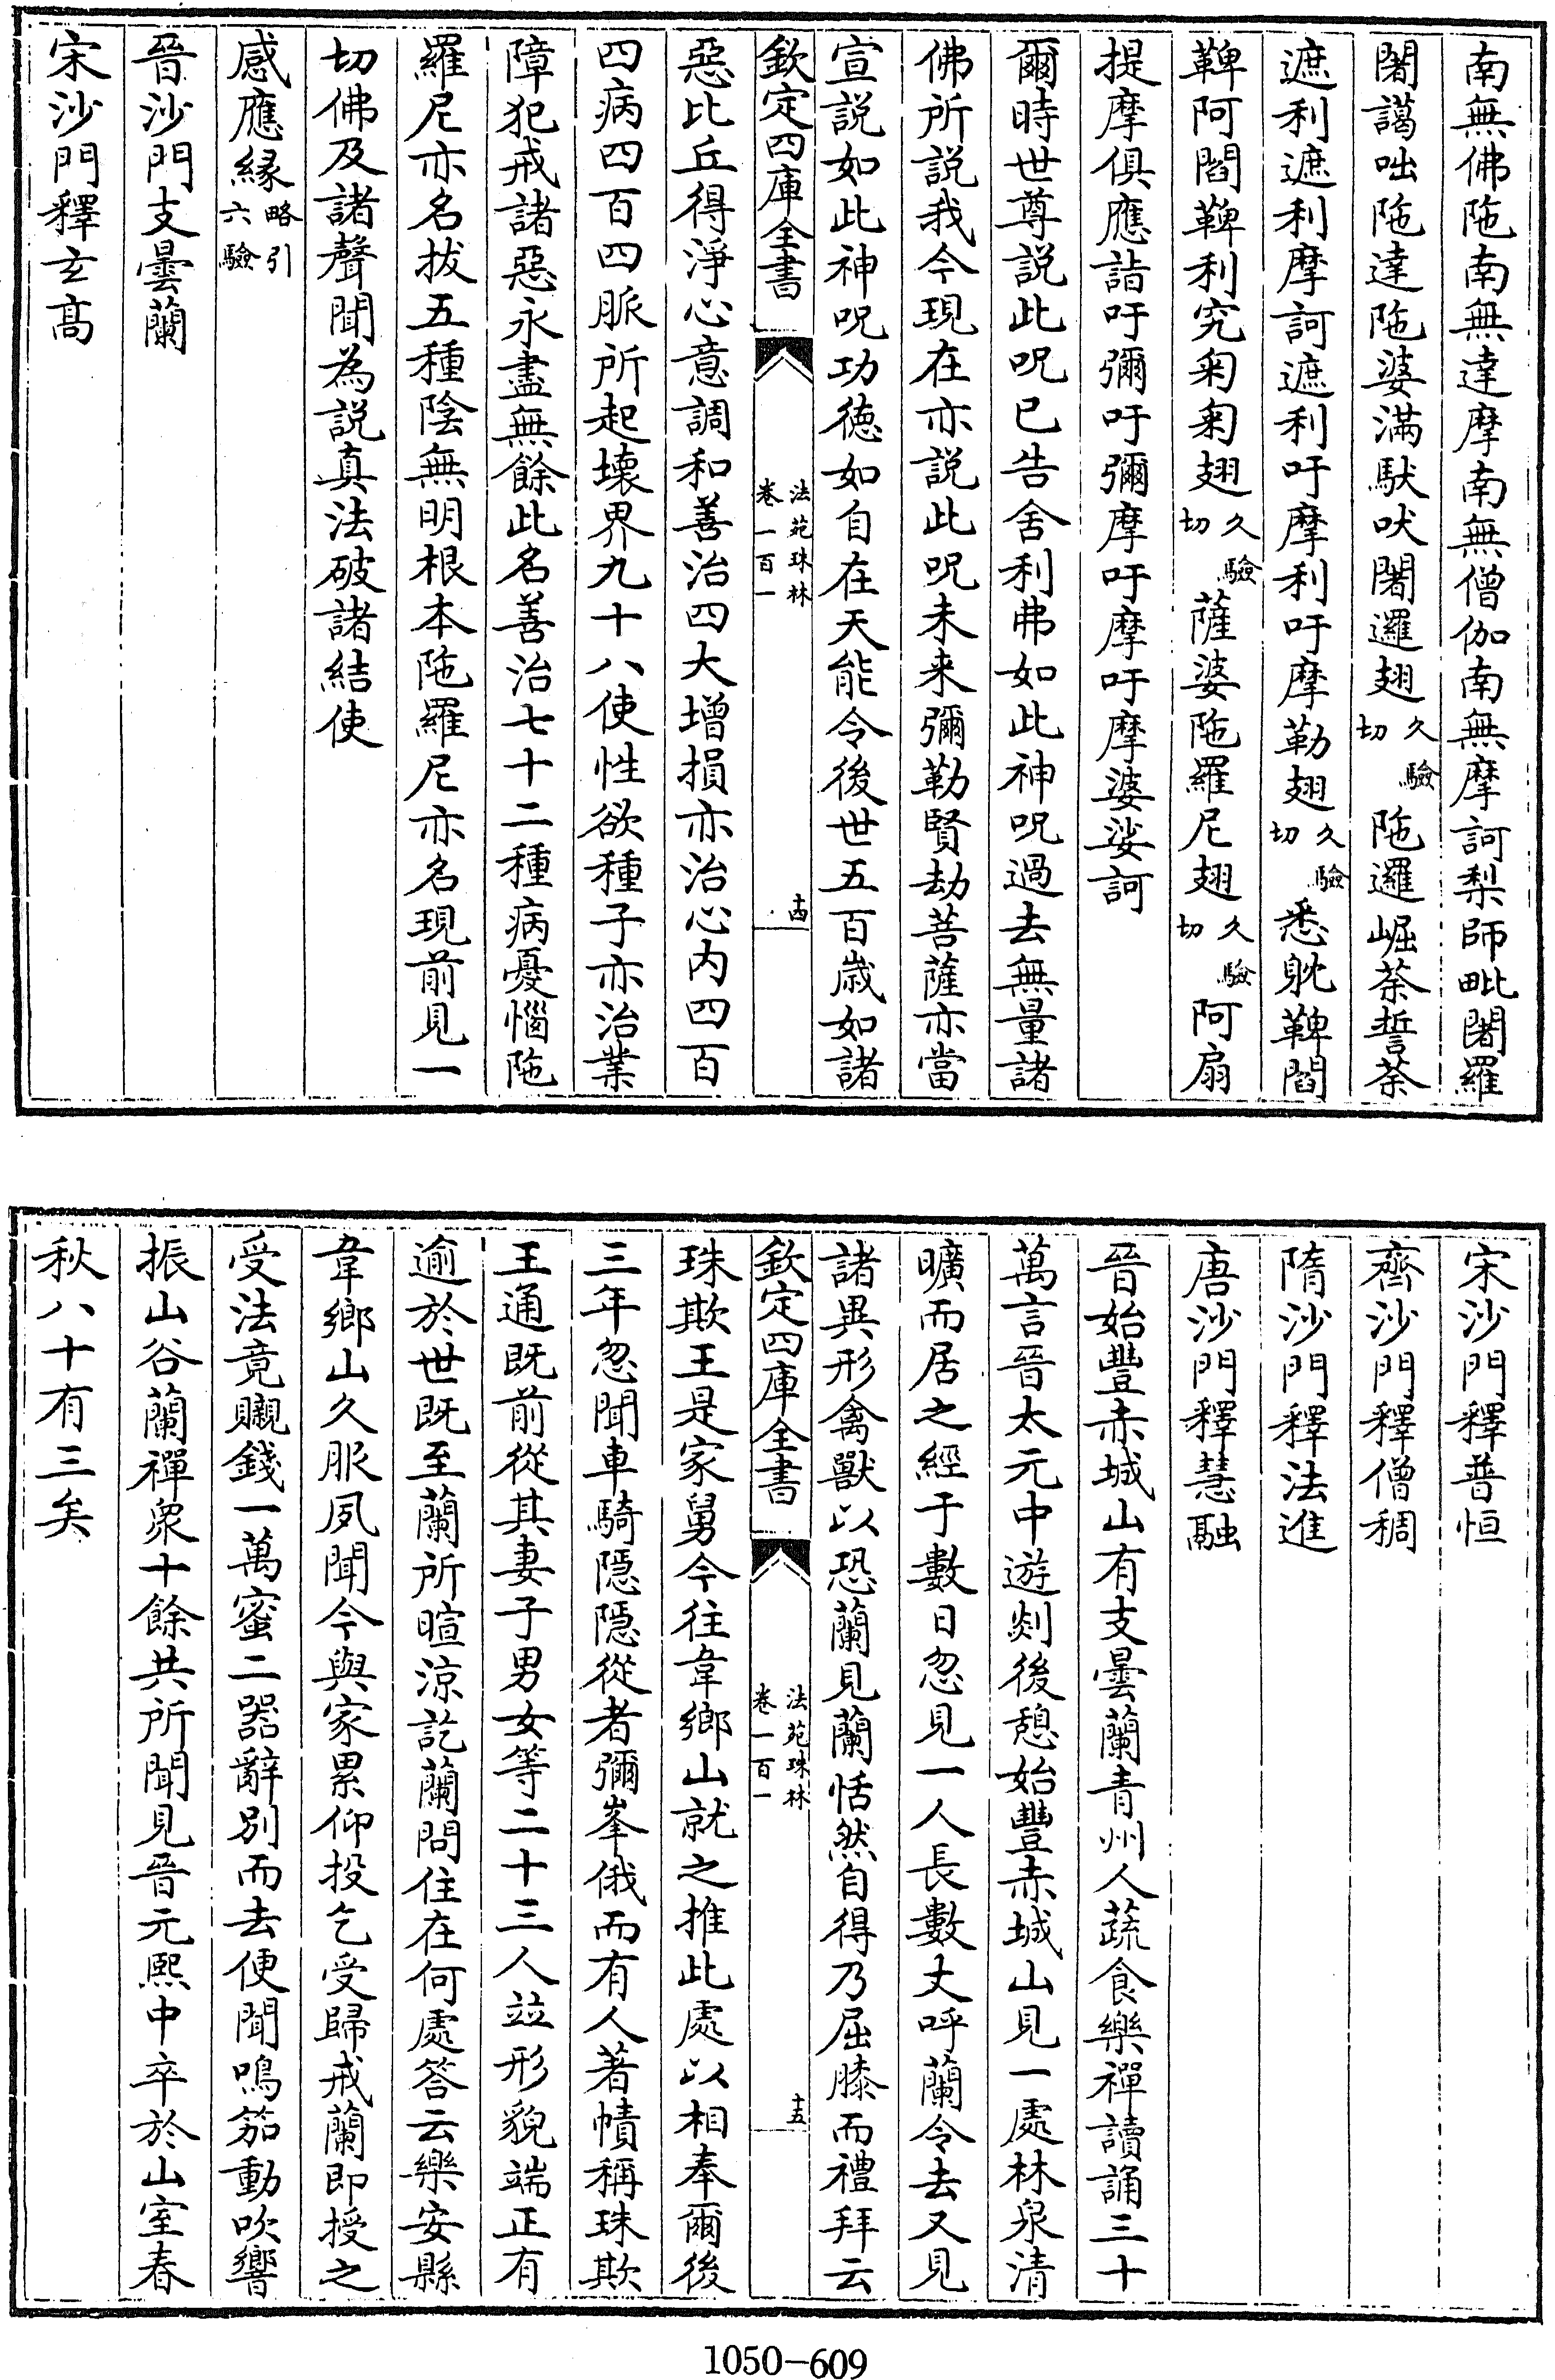 南無佛陁南無達摩南無僧伽南無摩訶梨師毗闍羅
闍謁咄陁達陁婆滿馱吠闍邏翅久驗切陁邏崛荼誓荼
遮利遮利摩訶遮利吁摩利吁摩勒翅久驗切悉躭鞞閻
鞞阿閻鞞利究匊匊翅久驗切薩婆陁羅尼翅久驗切阿扇
提摩俱應詣吁彌吁彌摩吁摩吁摩婆娑訶
爾時世尊説此呪已告舍利弗如此神呪過去無量諸
佛所説我今現在亦説此呪未来彌勒賢劫菩薩亦當
宣説如此神呪功徳如自在天能令後世五百歳如諸
欽定四庫全書
法苑珠林
卷一百一
十四
惡比丘得淨心意調和善治四大增損亦治心内四百
四病四百四脈所起壊界九十八使性欲種子亦治業
障犯戒諸惡永盡無餘此名善治七十二種病憂惱陁
羅尼亦名拔五種陰無明根本陁羅尼亦名現前見一
切佛及諸聲聞為説真法破諸結使
感應縁略引六驗
晉沙門支曇蘭
宋沙門釋玄髙
宋沙門釋普恒
齊沙門釋僧稠
隋沙門釋法進
唐沙門釋慧融
晉始豐赤城山有支曇蘭青州人蔬食樂禪讀誦三十
萬言晉太元中遊剡後憩始豐赤城山見一處林泉清
曠而居之經于數日忽見一人長數丈呼蘭令去又見
諸異形禽獸以恐蘭見蘭恬然自得乃屈膝而禮拜云
欽定四庫全書
法苑珠林
卷一百一
十五
珠欺王是家舅今往韋鄉山就之推此處以相奉爾後
三年忽聞車騎隱隱從者彌峯俄而有人著幘稱珠欺
王通既前從其妻子男女等二十三人竝形貌端正有
逾於世既至蘭所暄涼訖蘭問住在何處答云樂安縣
韋鄉山久服夙聞今與家累仰投乞受歸戒蘭即授之
受法竟䞋錢一萬蜜二器辭別而去便聞鳴笳動吹響
振山谷蘭禪衆十餘共所聞見晉元熈中卒於山室春
秋八十有三矣
1050-609